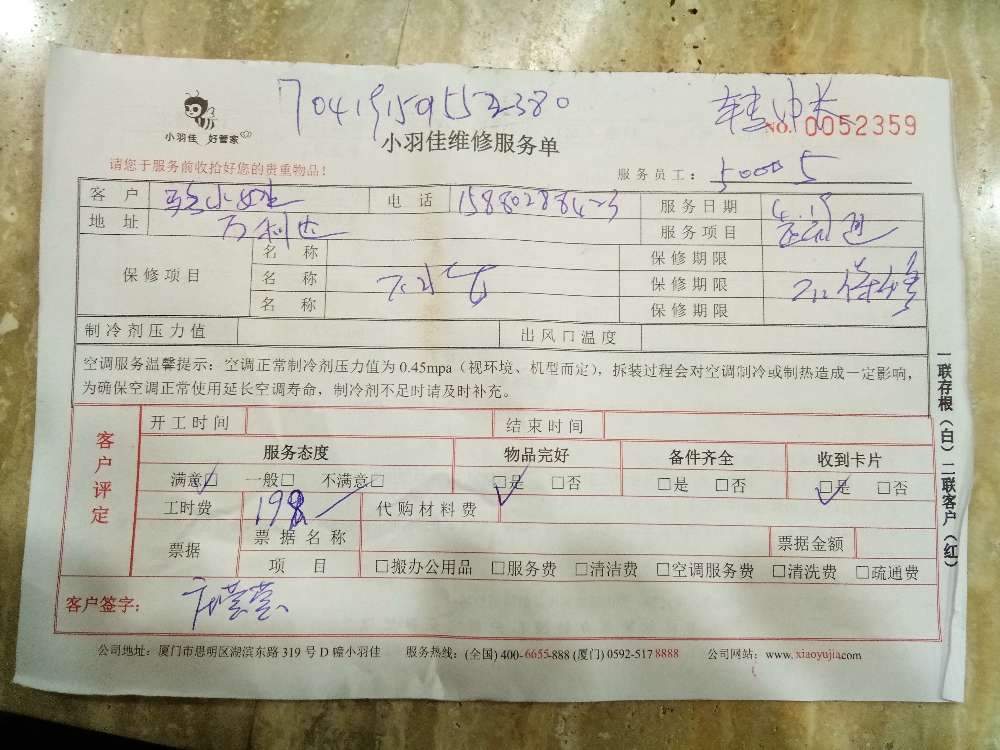 704191591552380
小羽佳 好管家
小羽佳维修服务单
NO. 0052359
请您于服务前收拾好您的贵重物品!
服务员工: 500005
客 户 电 话 服务日期
地 址 万利达 服务项目
保修项目 名 称 保修期限
名 称 保修期限 不保修
名 称 保修期限
制冷剂压力值 出风口温度
空调服务温馨提示: 空调正常制冷剂压力值为 0.45mpa (视环境、机型而定), 拆装过程会对空调制冷或制热造成一定影响,
为确保空调正常使用延长空调寿命, 制冷剂不足时请及时补充。
客户评定
开工时间 结束时间
服务态度 物品完好 备件齐全 收到卡片
满意□ 一般□ 不满意□ □是 □否 □是 □否 □是 □否
工时费 198 代购材料费
票据 票据名称 票据金额
项 目 □搬办公用品 □服务费 □清洁费 □空调服务费 □清洗费 □疏通费
客户签字:
公司地址: 厦门市思明区湖滨东路 319 号 D 幢小羽佳 服务热线: (全国) 400-6655-888 (厦门) 0592-517 8888 公司网站: www.xiaoyujia.com
一联存根(白) 二联客户(红)